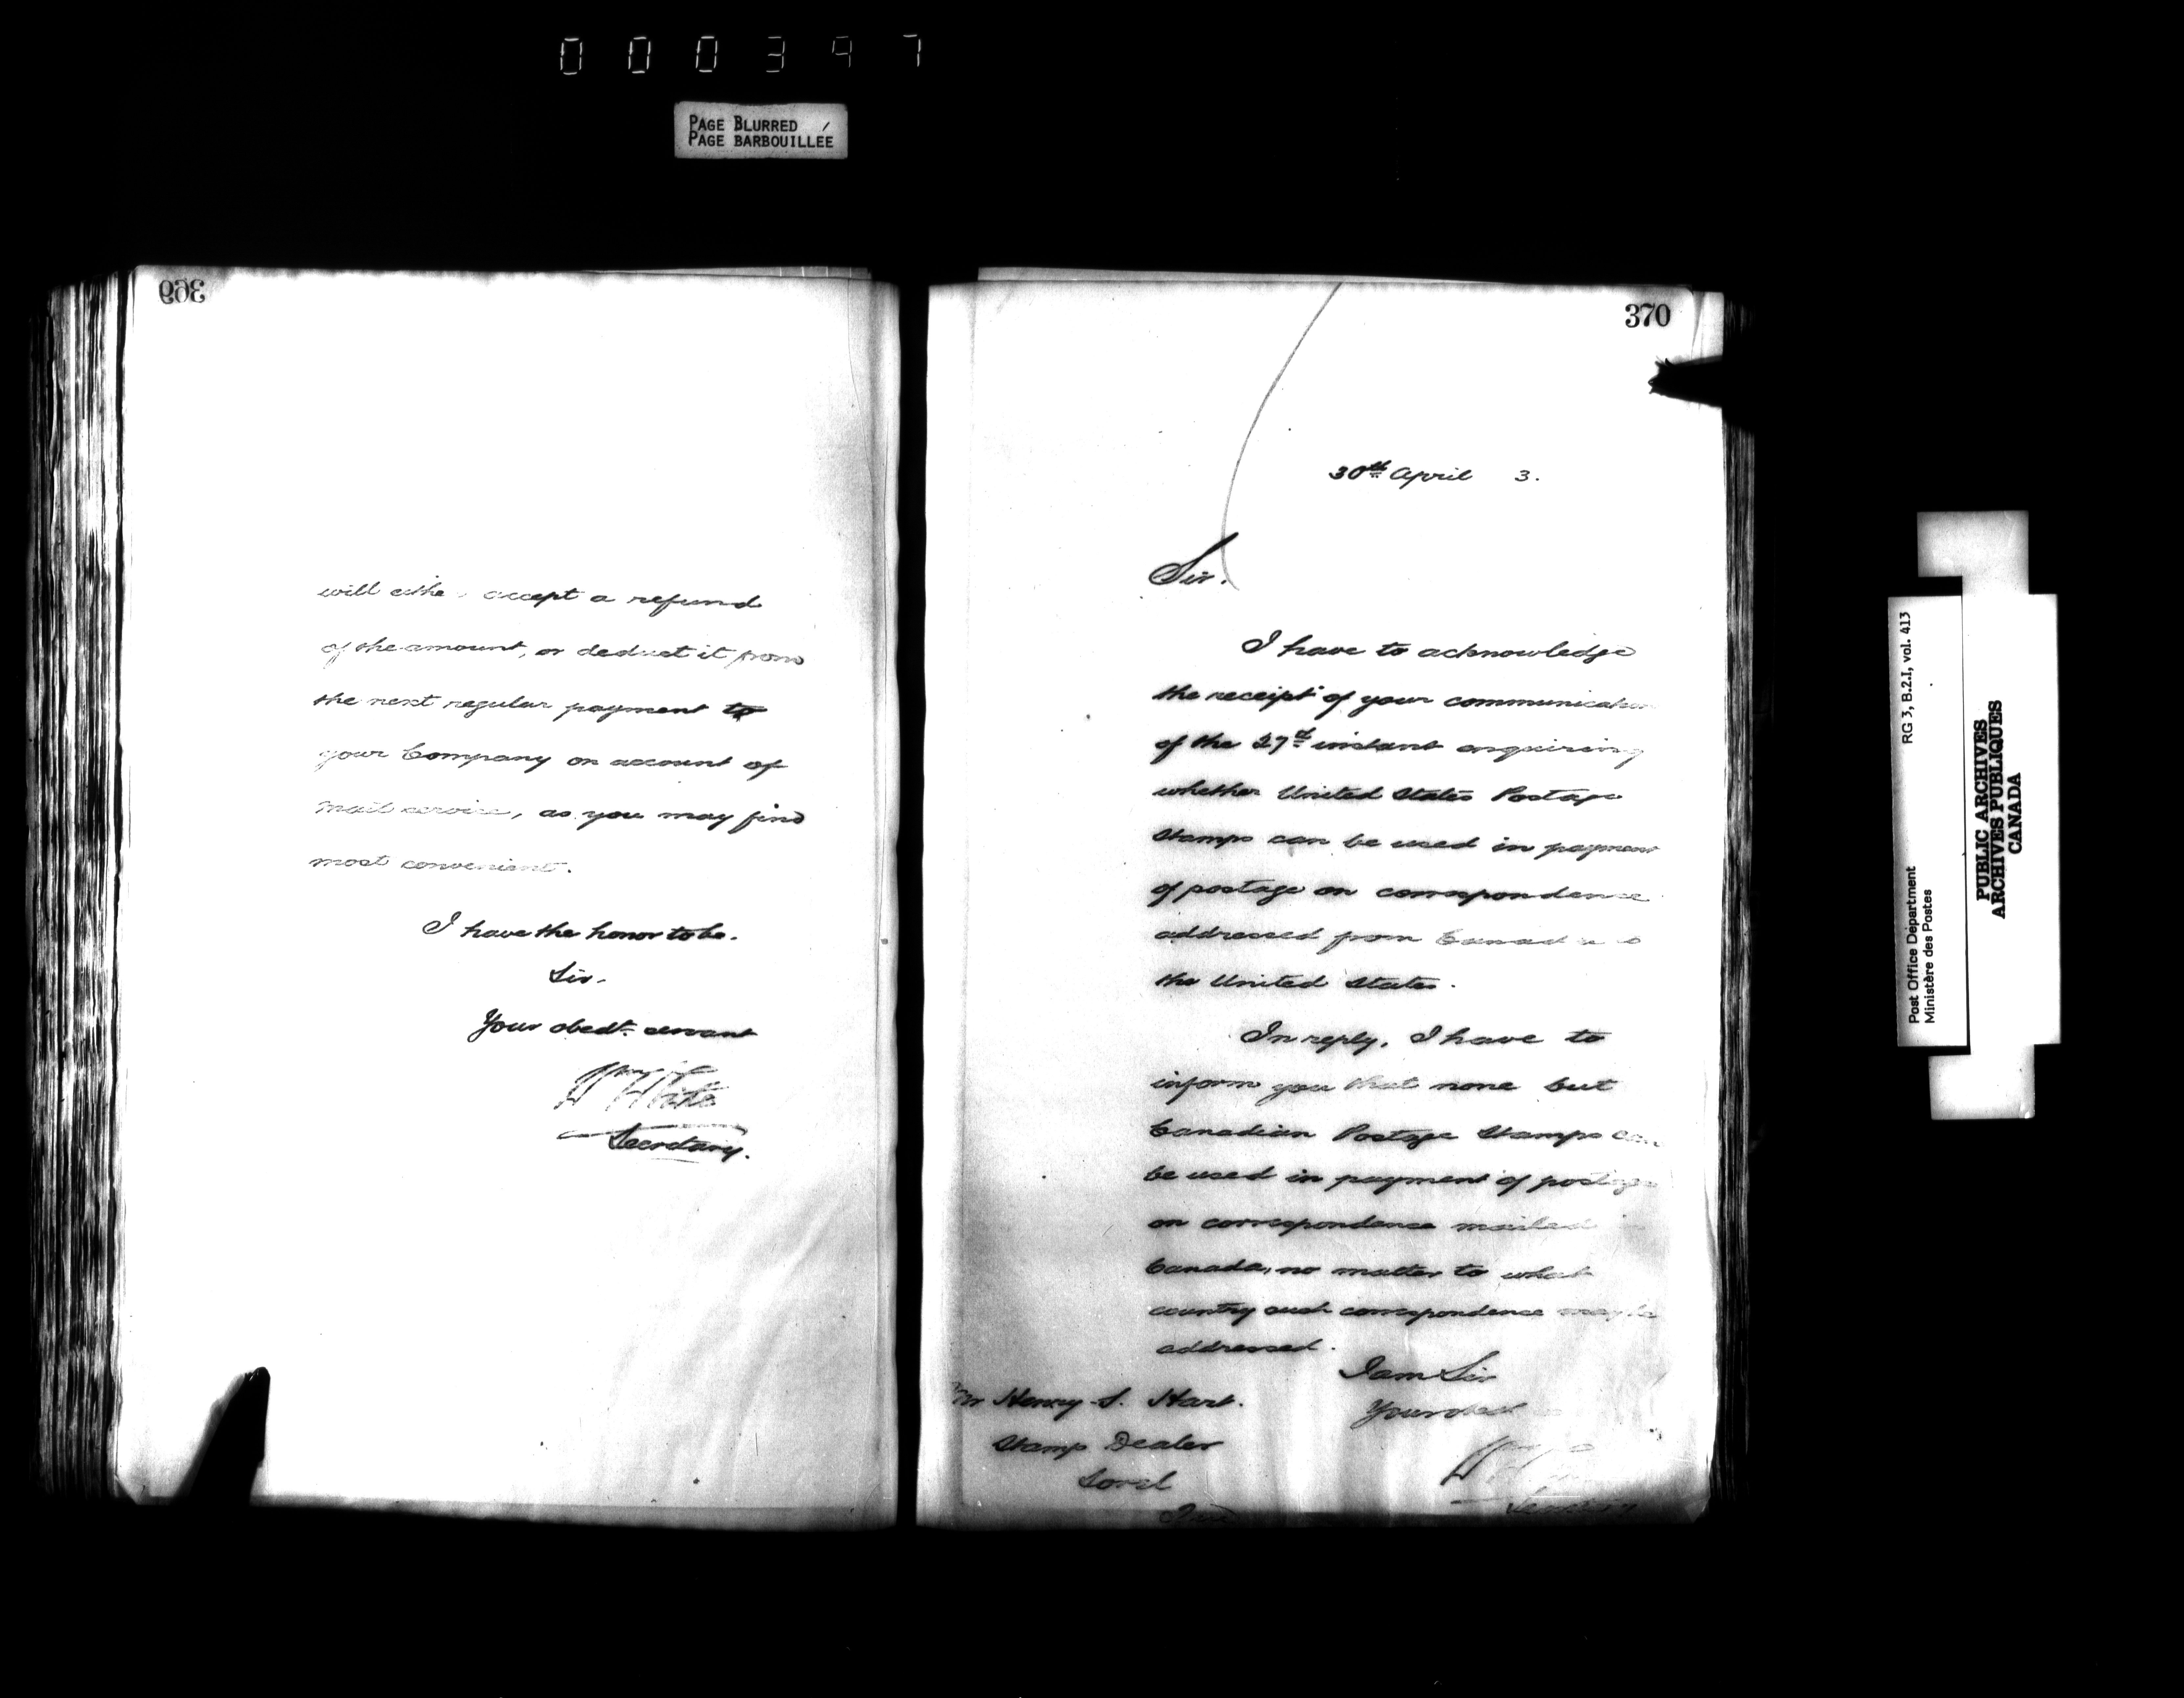 000397
PAGE BLURRED
PAGE BARBOUILLÉE
369
will eithe accept a refund
of the amount, or deduct it from
the next regular payment to
your Company on account of
Mail service, as you may find
most convenient.
I have the honor to be.
Sir.
Your obedt. servant
Wm White
Secretary.
370
30th April 3.
Sir.
I have to acknowledge
the receipt of your communication
of the 27th instant enquiring
whether United States Postage
Stamps can be used in payment
of postage on correspondence
addressed from Canada to
the United States.
In reply, I have to
inform you that none but
Canadian Postage Stamps can
be used in payment of postage
on correspondence mailed
Canada, no matter to what
country such correspondence may be
addressed.
I am Sir
Your obed
Secretary
Mr Henry S. Hart.
Stamp Dealer
Sorel
Que
RG 3, B.2.I, vol. 413
Post Office Department
Ministère des Postes
PUBLIC ARCHIVES
ARCHIVES PUBLIQUES
CANADA